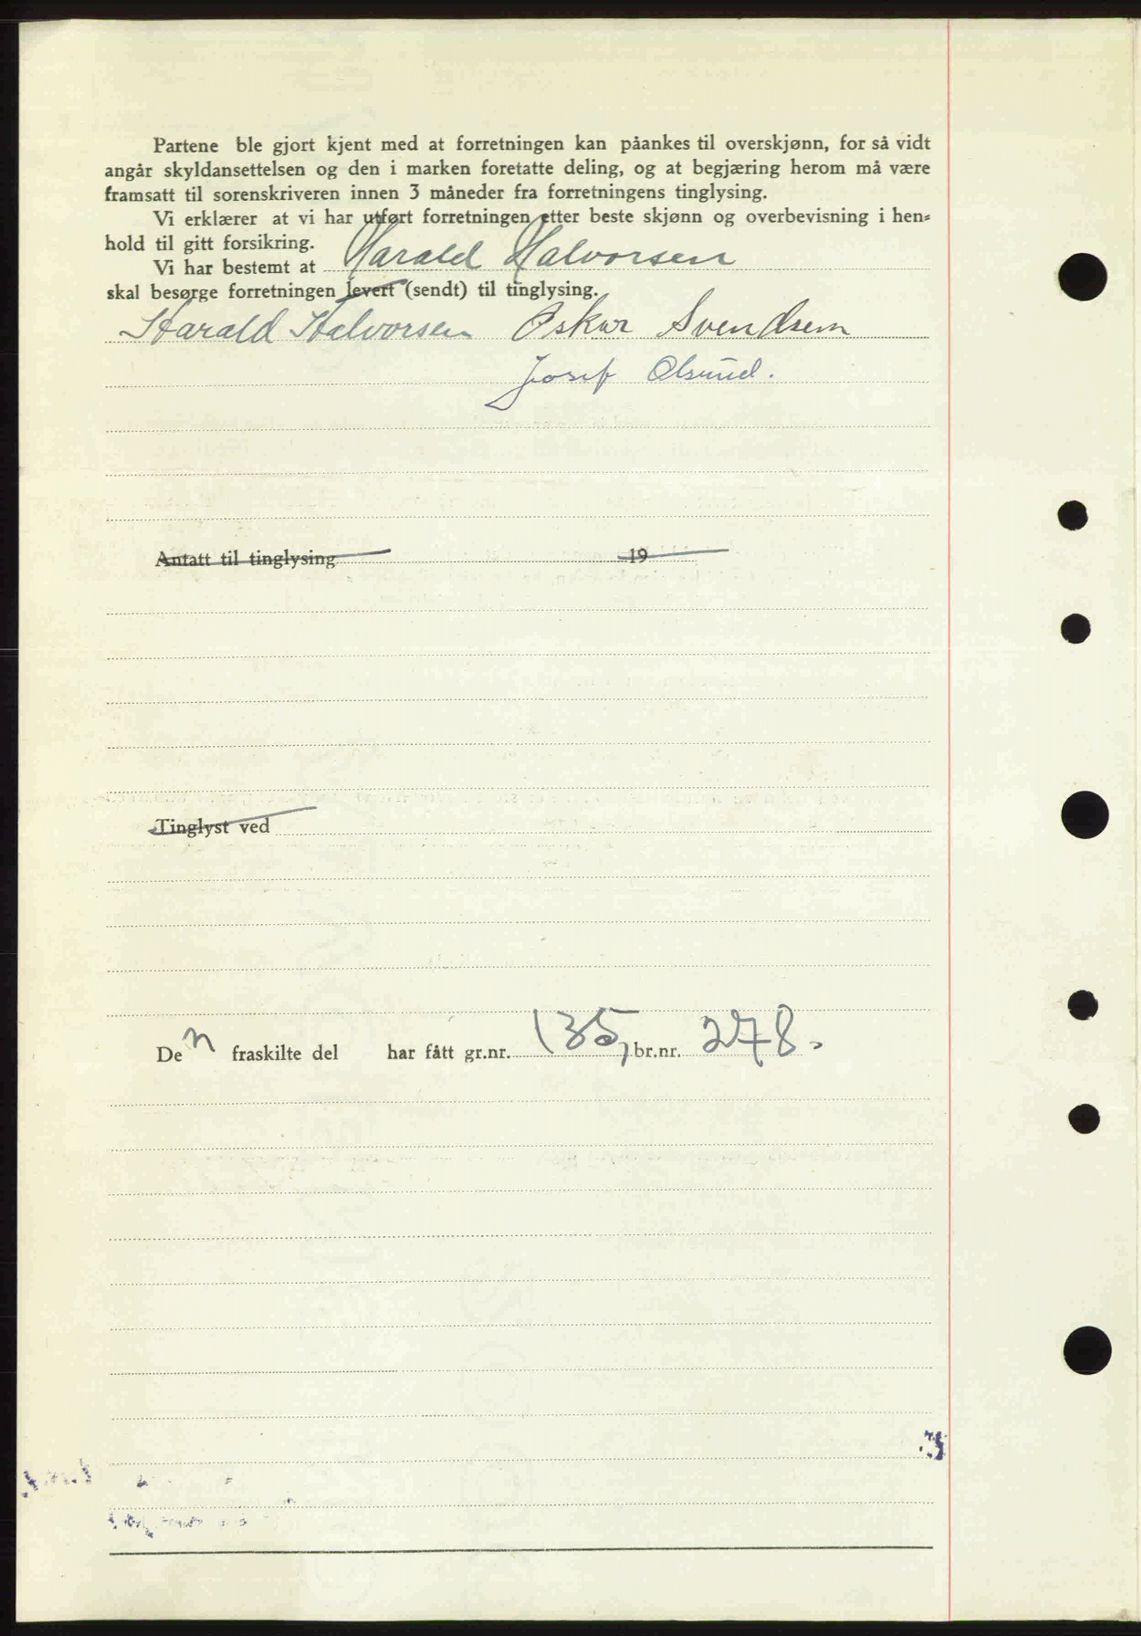 Partene ble gjort kjent med at forretningen kan påankes til overskjønn, for så vidt
angår skyldansettelsen og den i marken foretatte deling, og at begjæring herom må være
framsatt til sorenskriveren innen 3 måneder fra forretningens tinglysing.
Vi erklærer at vi har utført forretningen etter beste skjønn og overbevisning i hen-
hold til gitt forsikring.
Vi har bestemt at Harald Halvorsen
skal besørge forretningen levert (sendt) til tinglysing.
Harald Halvorsen Oskar Svendsen
Josef Olsund.
Antatt til tinglysing 19
Tinglyst ved
Den fraskilte del har fått gr.nr. 135, br.nr. 278.